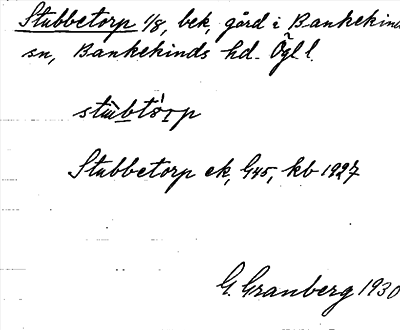 Stubbetorp 1/8, bek, gård i Bankekinds
sn, Bankekinds hd. Ögl.
Stubbetorp ek, G45, kb 1927
G. Granberg 1930